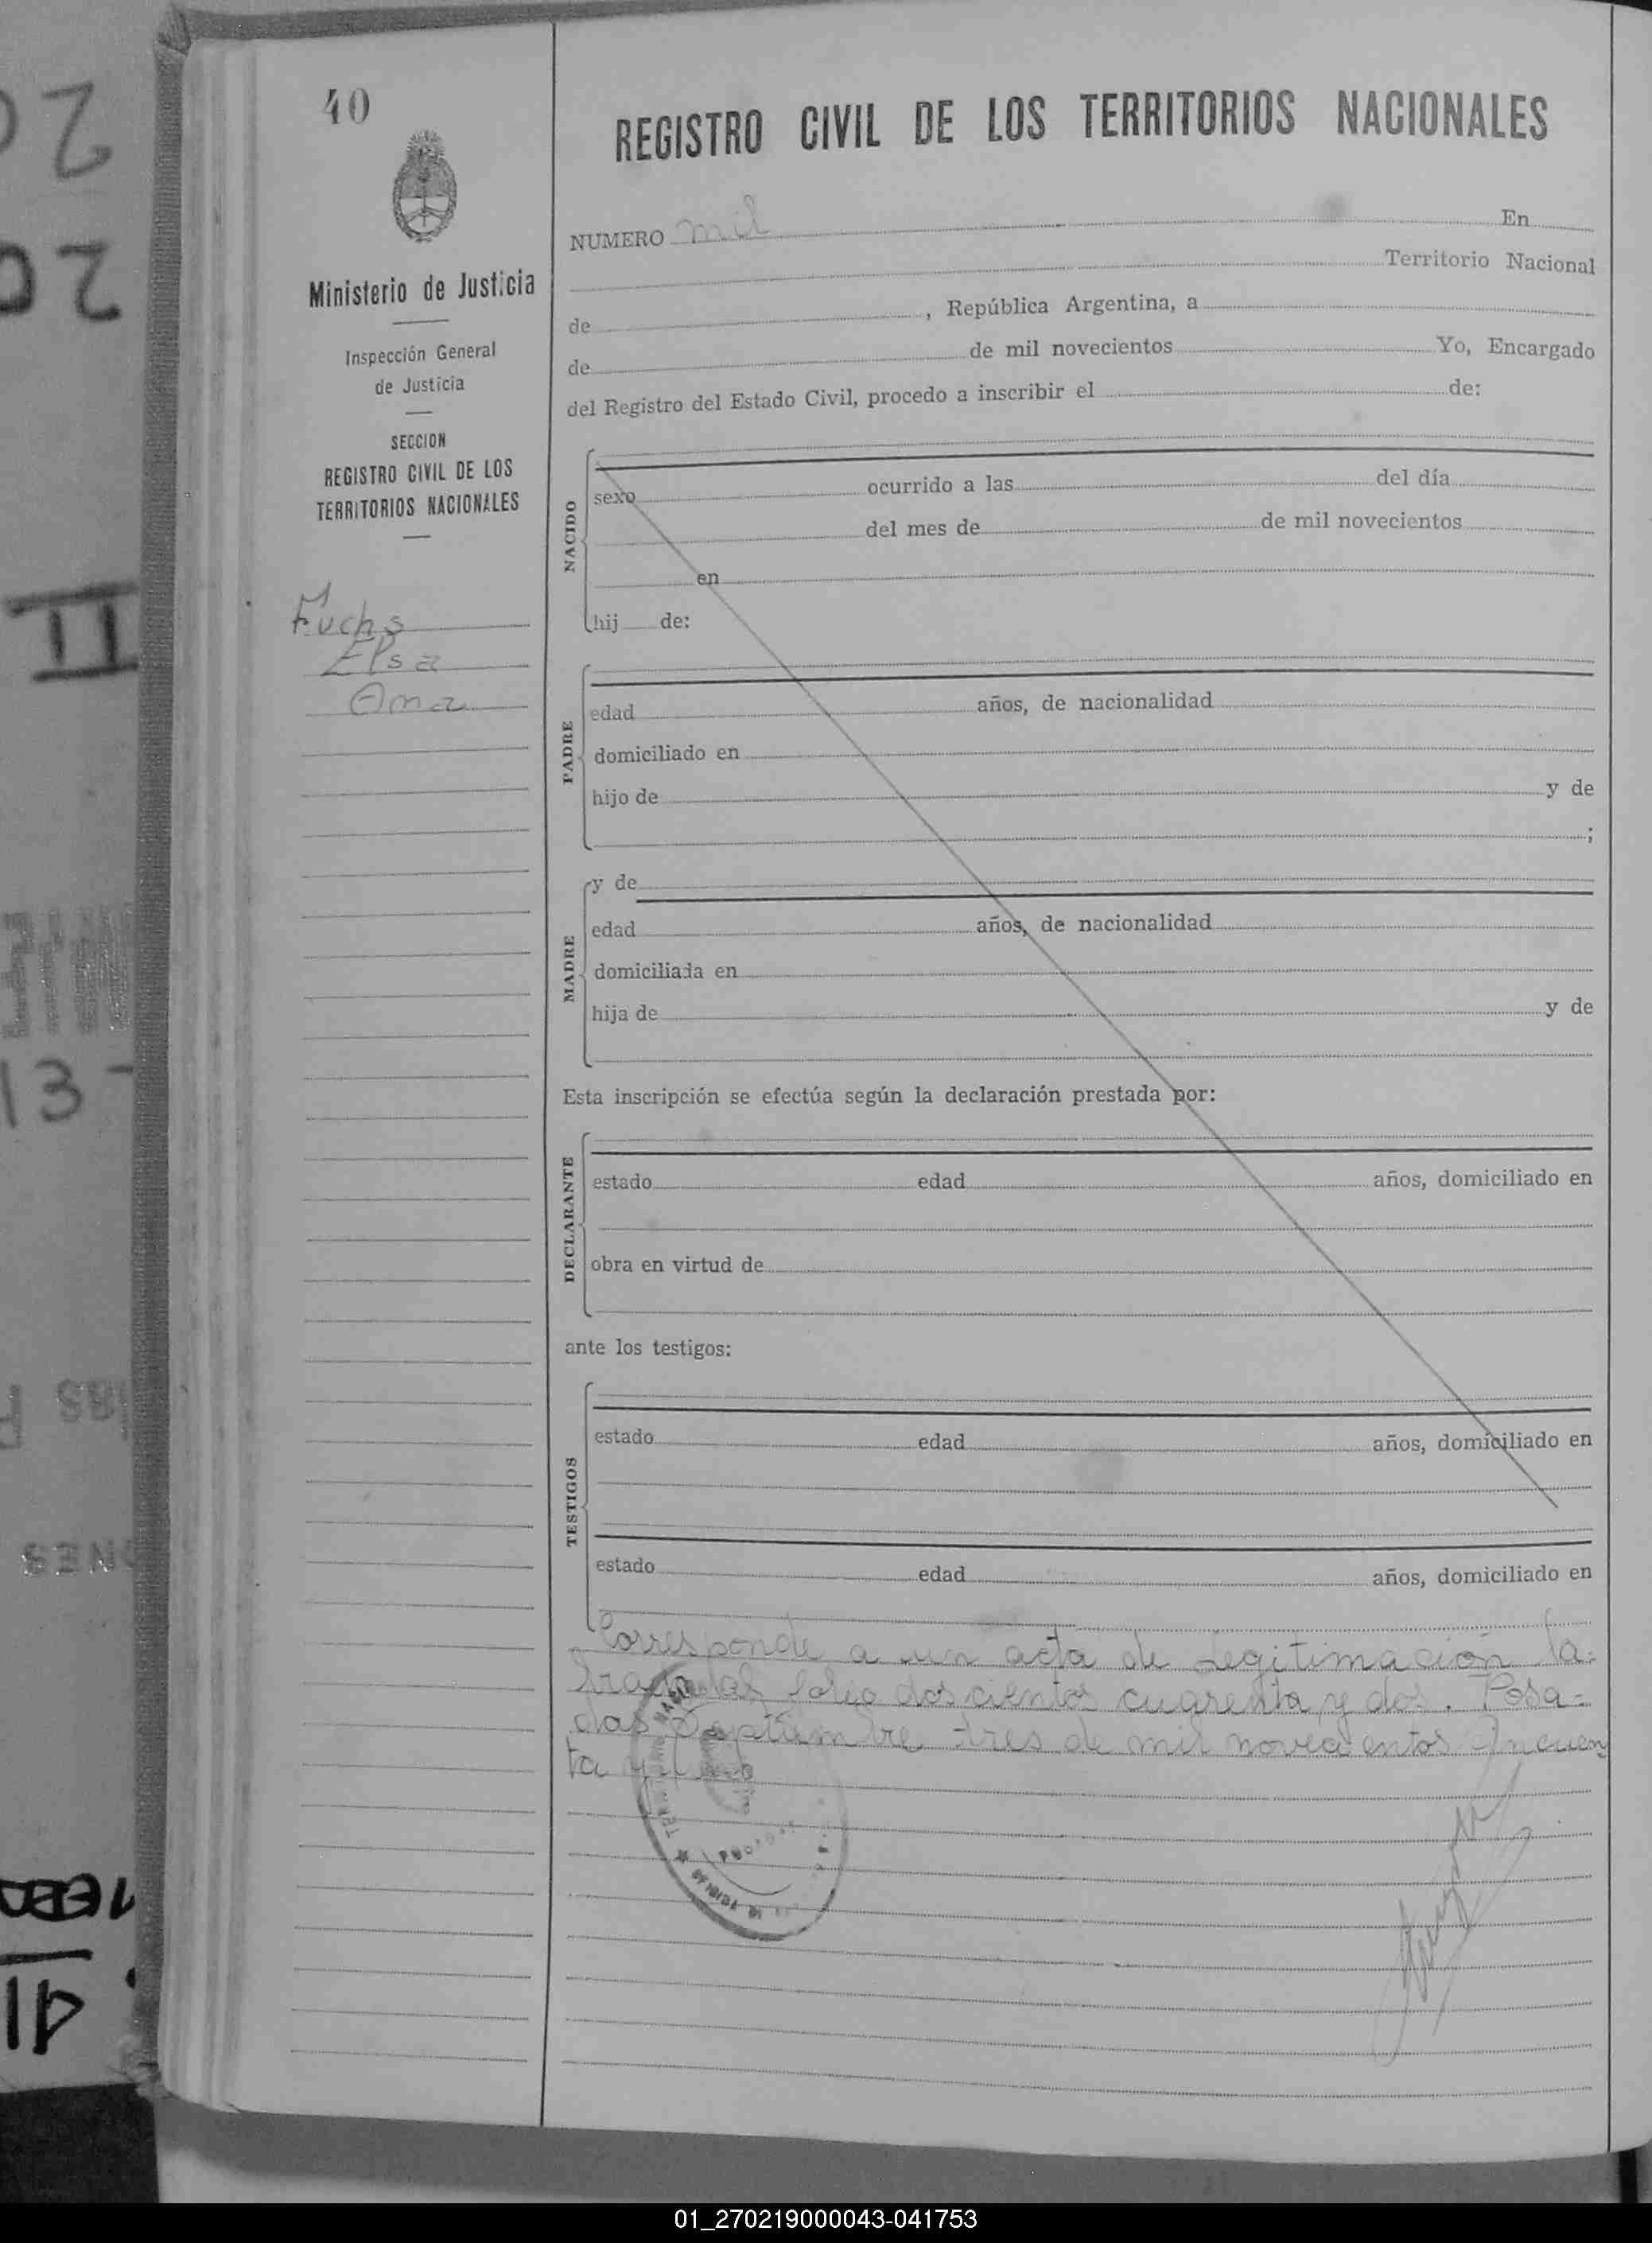 40
REGISTRO CIVIL DE LOS TERRITORIOS NACIONALES
Ministerio de Justicia
Inspección General
de Justicia
SECCION
REGISTRO CIVIL DE LOS
TERRITORIOS NACIONALES
Fuchs
Elsa
NUMERO mil En
Territorio Nacional
de , República Argentina, a
de de mil novecientos Yo, Encargado
del Registro del Estado Civil, procedo a inscribir el de:
NACIDO
sexo ocurrido a las del día
del mes de de mil novecientos
en
hij de:
PADRE
edad años, de nacionalidad
domiciliado en
hijo de y de
;
MADRE
y de
edad años, de nacionalidad
domiciliada en
hija de y de
Esta inscripción se efectúa según la declaración prestada por:
DECLARANTE
estado edad años, domiciliado en
obra en virtud de
ante los testigos:
TESTIGOS
estado edad años, domiciliado en
estado edad años, domiciliado en
Corresponde a un acta de legitimación la-
brada al folio doscientos cuarenta y dos. Posa-
das Septiembre tres de mil novecientos cincuen
ta y
01_270219000043-041753